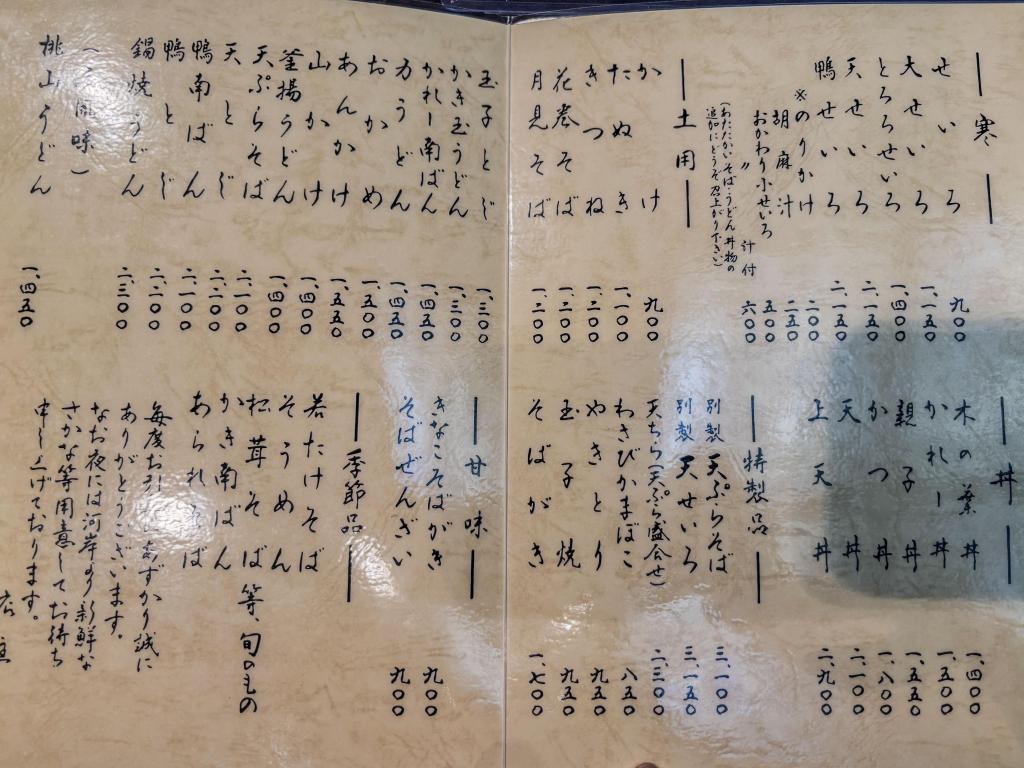 寒
せいろ 九〇〇
大せいろ 一、一五〇
とろろせいろ 一、四〇〇
天せいろ 二、一五〇
鴨せいろ 二、一五〇
※のりかけ 二〇〇
胡麻汁 二五〇
おかわり小せいろ 五〇〇
〃 汁付 六〇〇
(あたたかいそば・うどん丼物の
追加にどうぞ召上がり下さい)
土用
かけ 九〇〇
たぬき 一、一〇〇
きつね 一、二〇〇
花巻そば 一、二〇〇
月見そば 一、二〇〇
丼
木の葉丼 一、四〇〇
かれー丼 一、五〇〇
親子丼 一、五五〇
かつ丼 一、八〇〇
天丼 二、一〇〇
上天丼 二、九〇〇
特製品
別製 天ぷらそば 三、一〇〇
別製 天せいろ 三、一五〇
天ちら(天ぷら盛合せ) 二、三〇〇
わさびかまぼこ 八五〇
やきとり 九五〇
玉子焼 九五〇
そばがき 一、七〇〇
玉子とじ 一、三〇〇
かき玉うどん 一、三〇〇
かれー南ばん 一、四五〇
力うどん 一、四五〇
おかめ 一、五〇〇
あんかけ 一、五五〇
山かけ 一、四〇〇
釜揚うどん 一、四〇〇
天ぷらそば 二、一〇〇
天とじ 二、二〇〇
鴨南ばん 二、一〇〇
鴨とじ 二、二〇〇
鍋焼うどん 二、三〇〇
風味)
桃山うどん 一、四五〇
甘味
きなこそばがき 九〇〇
そばぜんざい 九〇〇
季節品
若たけそば
そうめん
松茸そば等、旬のもの
かき南ばん
あられそば
毎度お引 あずかり誠に
ありがとうございます。
なお夜には河岸より新鮮な
さかな等用意してお待ち
申し上げております。
店主